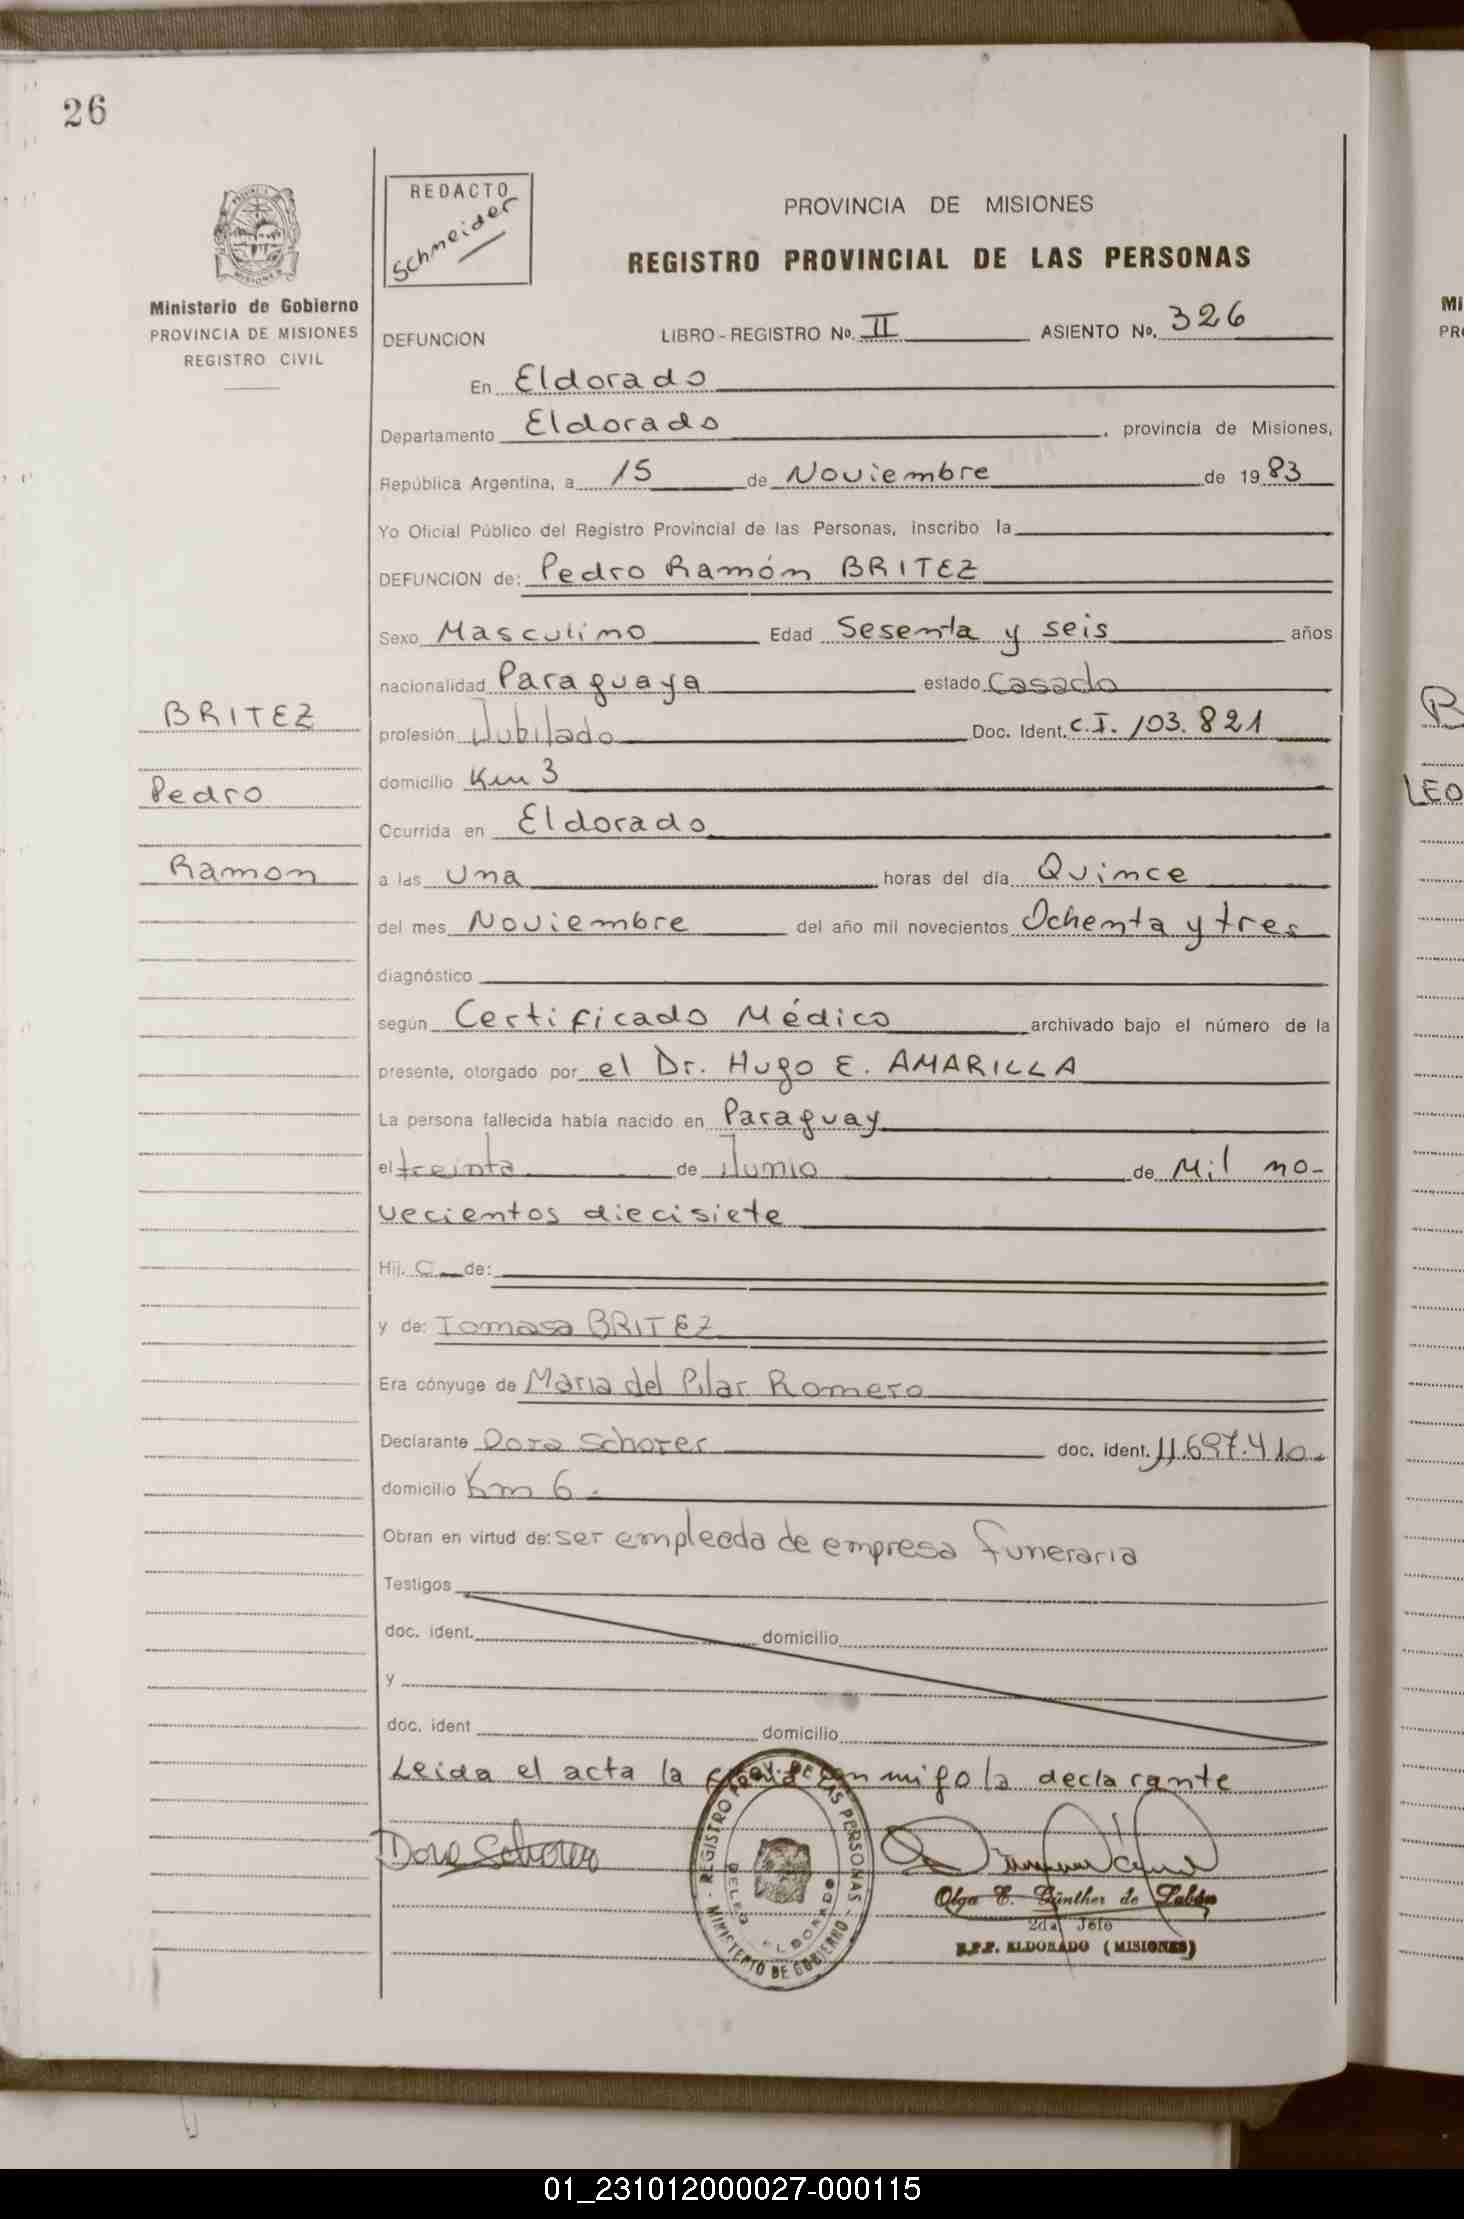 26
REDACTO
Schneider
PROVINCIA DE MISIONES
REGISTRO PROVINCIAL DE LAS PERSONAS
Ministerio de Gobierno
PROVINCIA DE MISIONES
REGISTRO CIVIL
DEFUNCION LIBRO-REGISTRO Nº. II ASIENTO Nº. 326
En Eldorado
Departamento Eldorado, provincia de Misiones,
República Argentina, a 15 de Noviembre de 1983
Yo Oficial Público del Registro Provincial de las Personas, inscribo la
DEFUNCION de: Pedro Ramón BRITEZ
Sexo Masculino Edad Sesenta y seis años
nacionalidad Paraguaya estado Casado
BRITEZ
Pedro
Ramon
profesión Jubilado Doc. Ident. C.I. 103.821
domicilio Km 3
Ocurrida en Eldorado
a las Una horas del día Quince
del mes Noviembre del año mil novecientos Ochenta y tres
diagnóstico
según Certificado Médico archivado bajo el número de la
presente, otorgado por el Dr. Hugo E. AMARILLA
La persona fallecida había nacido en Paraguay
el treinta de Junio de Mil no-
vecientos diecisiete
Hij. o de:
y de: Tomasa BRITEZ
Era cónyuge de Maria del Pilar Romero
Declarante Dora Schorer doc. ident. 11.697.410.
domicilio Km 6.
Obran en virtud de: ser empleada de empresa funeraria
Testigos
doc. ident. domicilio
y
doc. ident domicilio
Leida el acta la firma conmigo la declarante
Dora Schorer
REGISTRO PROV. DE LAS PERSONAS
DELEG ELDORADO
MINISTERIO DE GOBIERNO
Olga E. Günther de Labán
2da Jefe
R.P.P. ELDORADO (MISIONES)
Mi
PR
B
LEO
01_231012000027-000115